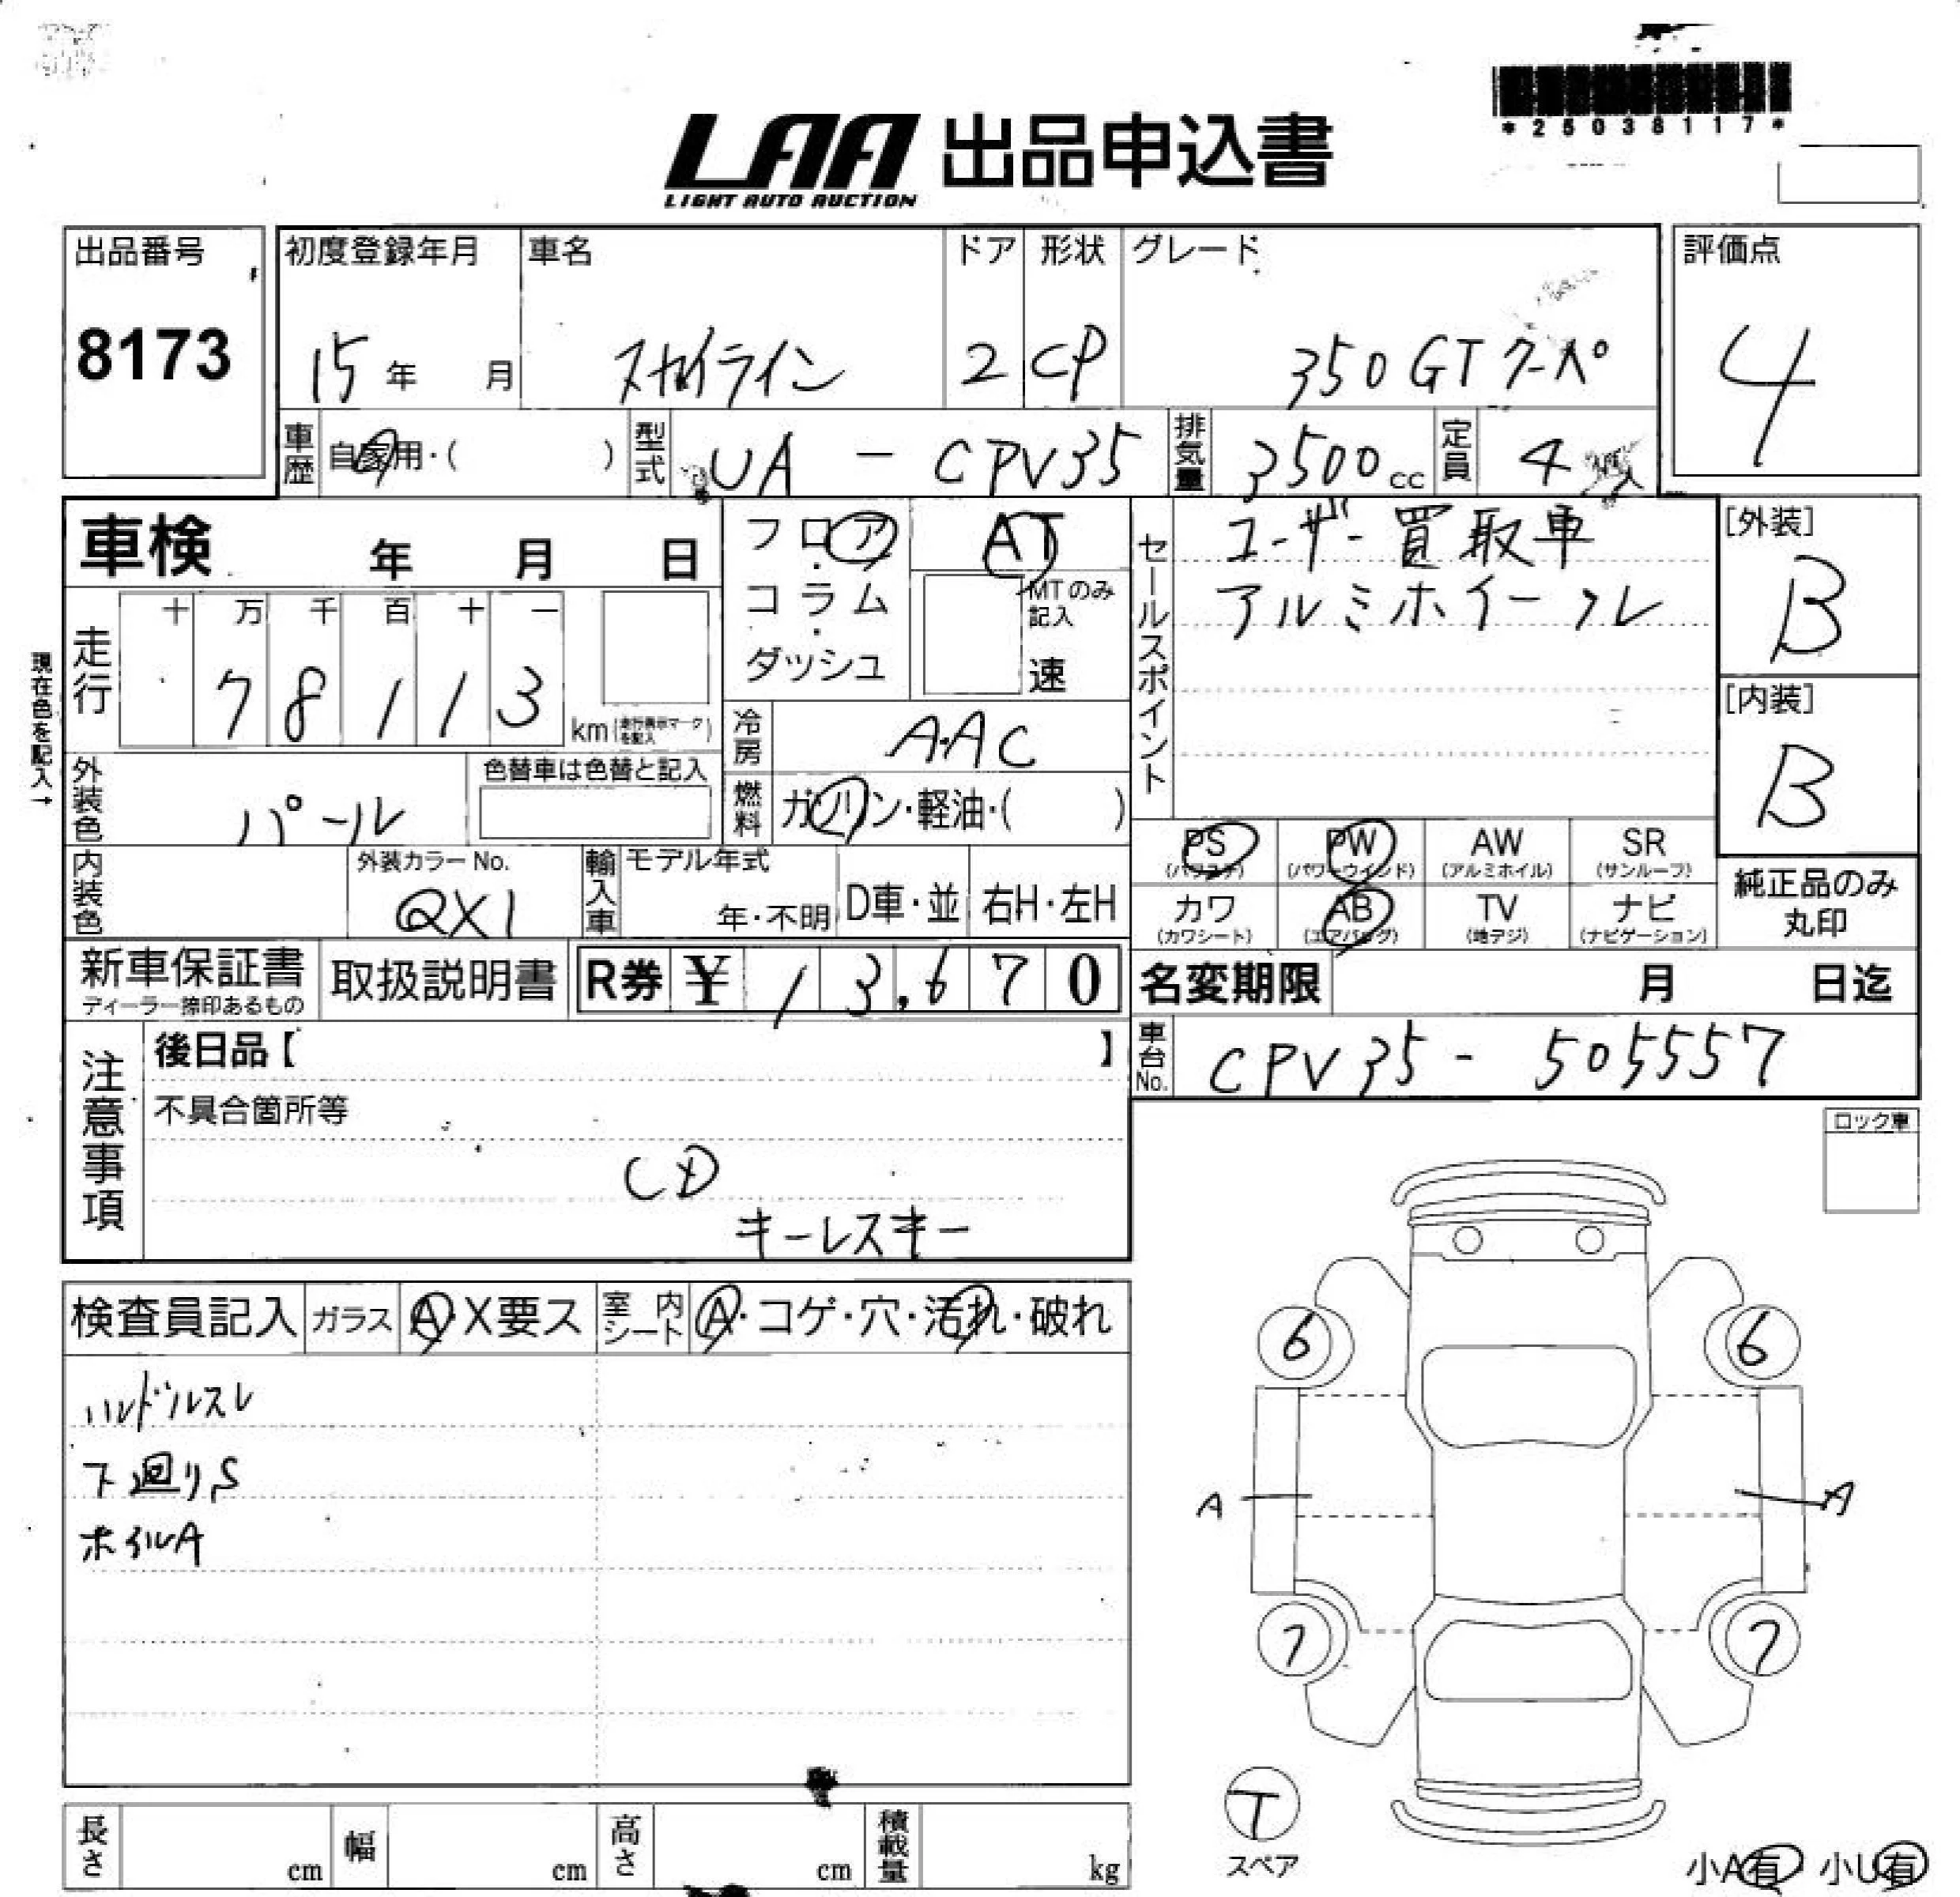 *25038117*
LAA 出品申込書
LIGHT AUTO AUCTION
出品番号
8173
初度登録年月
15年 月
車名
スカイライン
ドア
2
形状
CP
グレード
350GTクーペ
評価点
4
車歴
自家用・( )
型式
UA - CPV35
排気量
3500cc
定員
4人
車検 年 月 日
フロア・コラム・ダッシュ
AT
MTのみ記入
速
セールスポイント
ユーザー買取車
アルミホイール
[外装]
B
[内装]
B
現在色を記入→
走行
十 万 千 百 十 一
7 8 1 1 3
km(走行表示マークを記入)
冷房
AAC
外装色
パール
色替車は色替と記入
燃料
ガソリン・軽油・( )
PS
(パワステ)
PW
(パワーウインド)
AW
(アルミホイル)
SR
(サンルーフ)
カワ
(カワシート)
AB
(エアバッグ)
TV
(地デジ)
ナビ
(ナビゲーション)
純正品のみ
丸印
内装色
外装カラーNo.
QX1
輸入車
モデル年式
年・不明
D車・並
右H・左H
新車保証書
ディーラー捺印あるもの
取扱説明書
R券 ¥ 13,670
名変期限 月 日迄
注意事項
後日品【 】
車台No.
CPV35 - 505557
不具合箇所等
CD
キーレスキー
ロック車
検査員記入
ガラス
A・X要ス
室内シート
A・コゲ・穴・汚れ・破れ
ハンドルスレ
下廻りS
ホイルA
6
6
A
A
7
7
T
スペア
小A有 小U有
長さ cm
幅 cm
高さ cm
積載量 kg